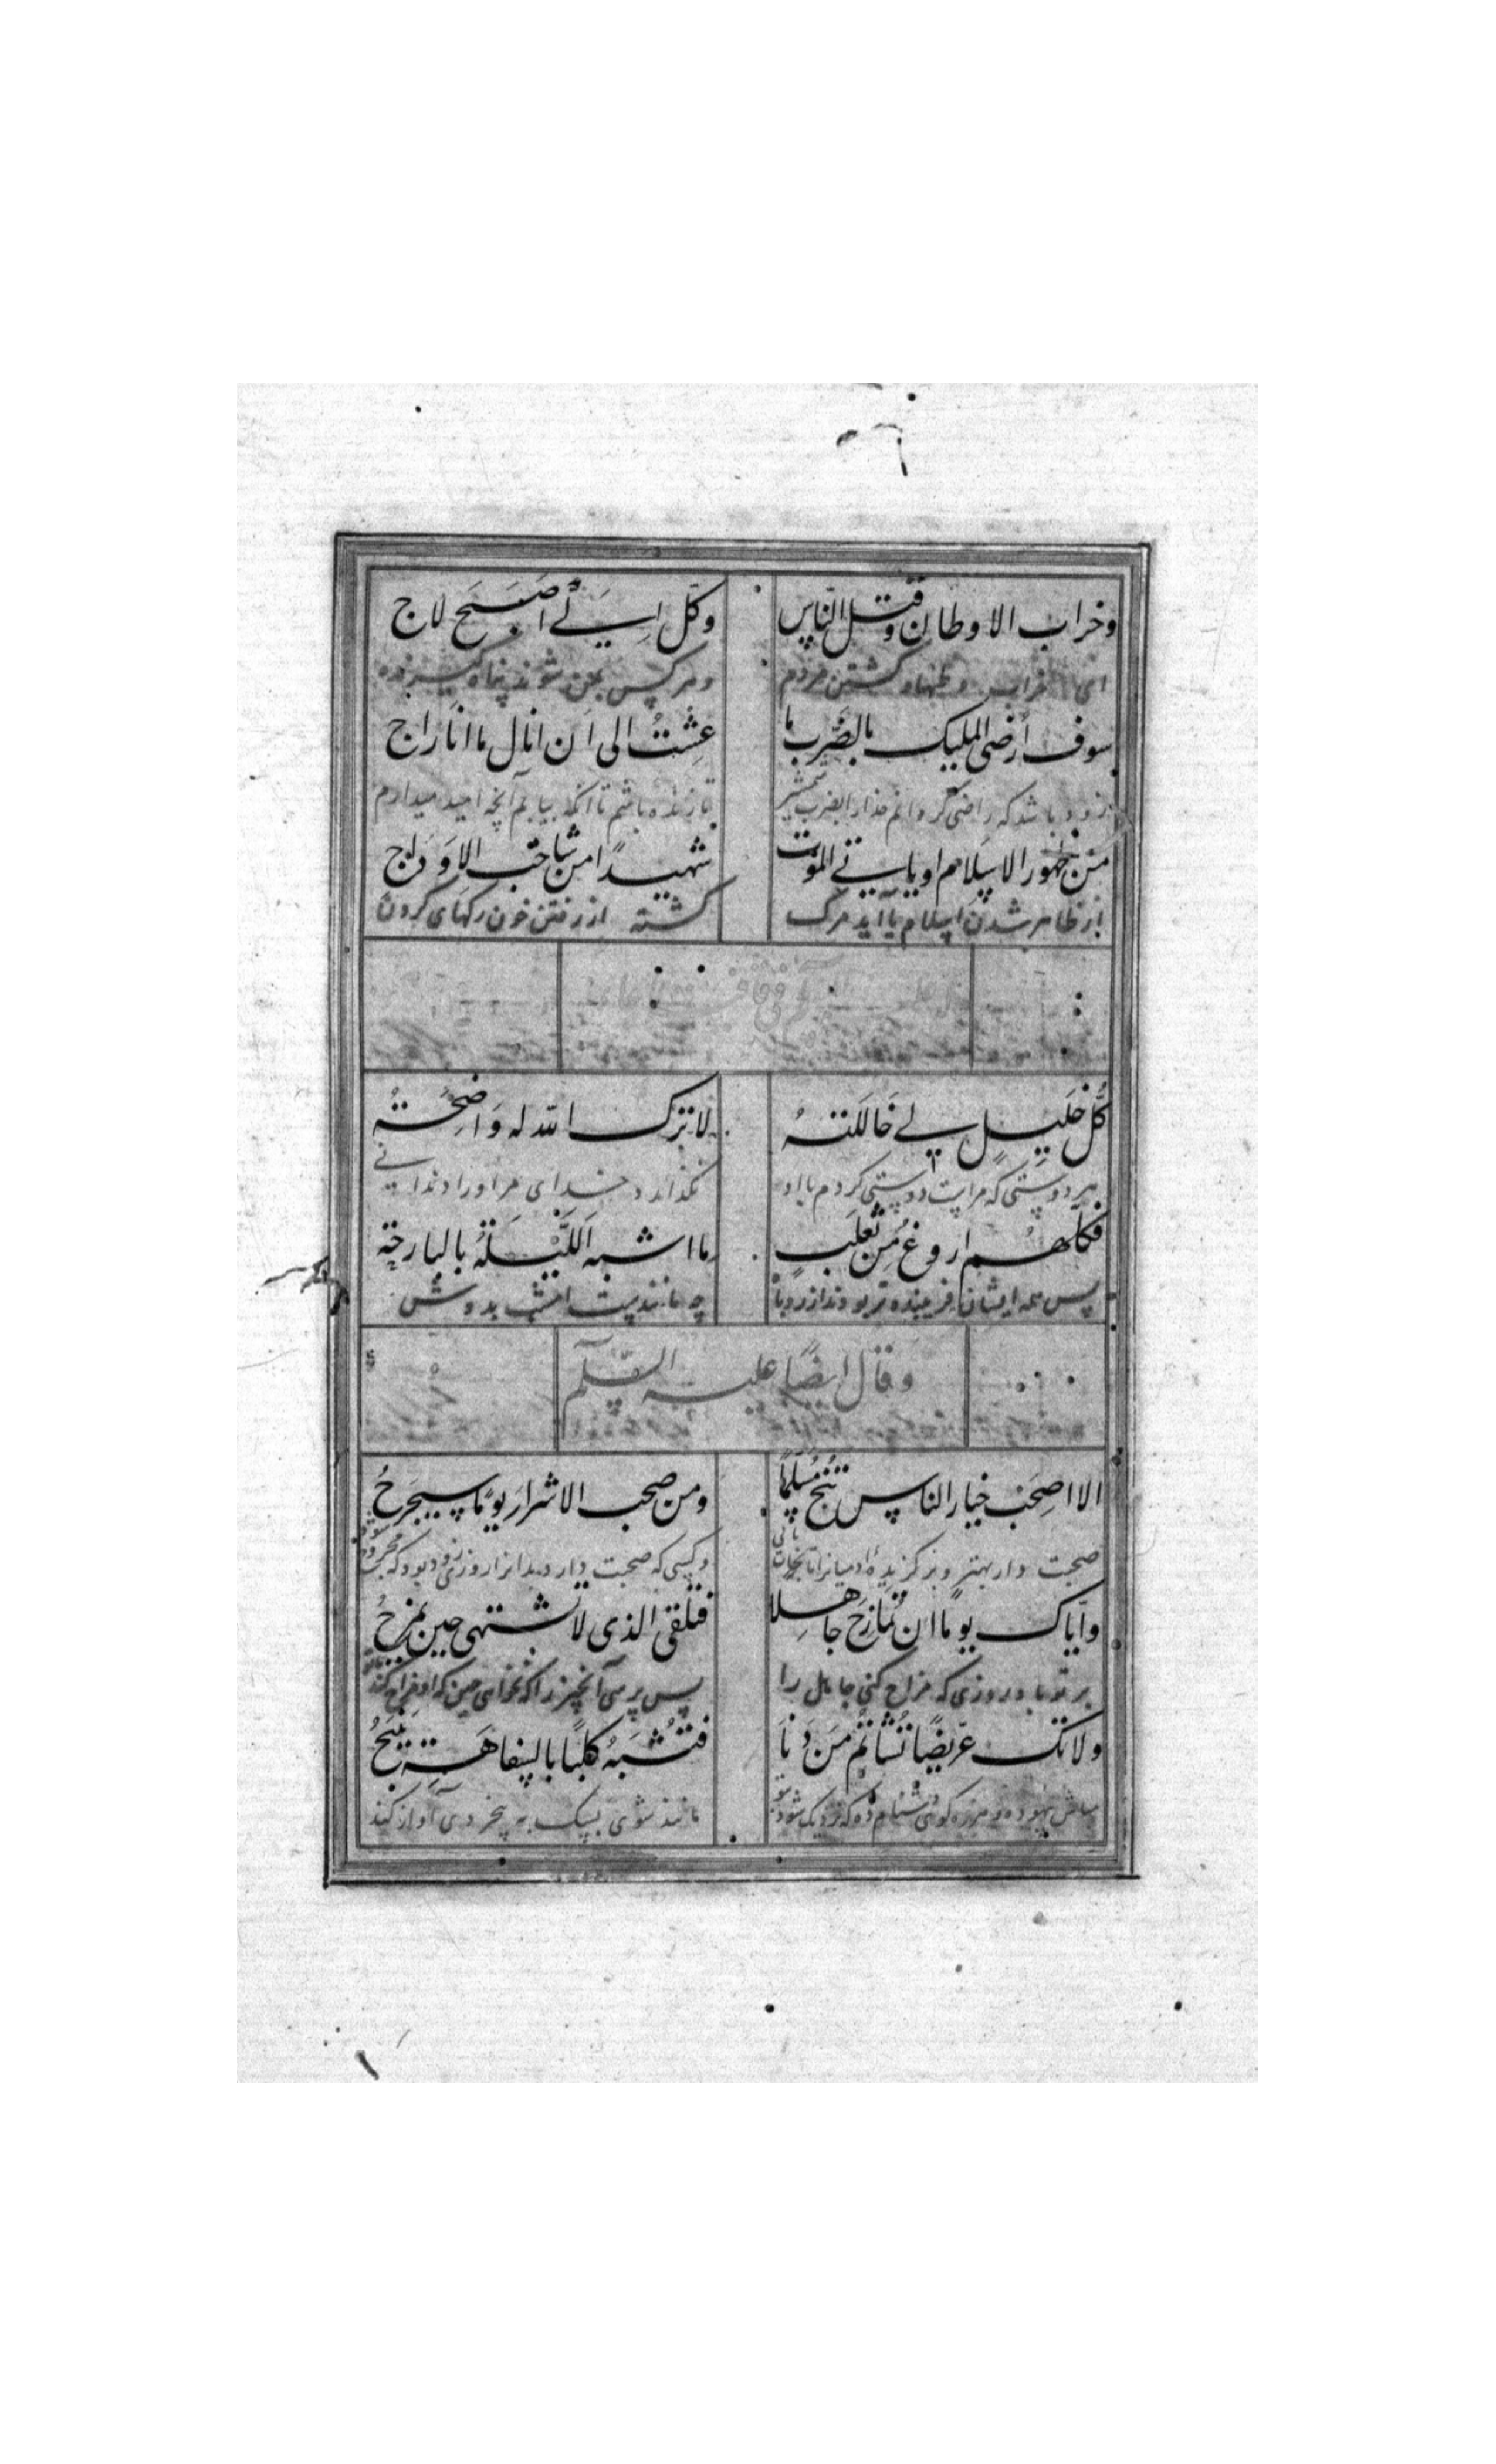 وخراب الاوطان وقتل الناس وكل اسیئے اصبح لاج
ای خراب وطنها و کشتن مردم و هر کس بحزن شوند پناه
سوف أرضى المليك بالضرب ما عشتُ الى ان انال ما انا راج
زود باشد که راضی گردانم خدا را بضرب شمشیر تا زنده باشم تا آنکه بیابم آنچه امید میدارم
من ظهور الاسلام او ياتي الموت شهيدًا من شاخب الاوداج
از ظاهر شدن اسلام یا آید مرک کشته از رفتن خون رکهای کردن
كل خليل لي خاللته لا ترك الله له واضحة
هر دوستی که مراست دوستی کردم با او نگذارد خدای مر او را دندانی
فكلهم اروغ من ثعلب ما اشبه الليلة بالبارحة
پس همه ایشان فریبنده تر بودند از روباه چه مانندست امشب بدوش
وقال ايضًا عليه السلم
الا اصحب خيار الناس تنج مسلّمًا ومن صحب الاشرار يومًا سيجرحُ
صحبت دار بهتر و برگزیدهٔ آدمیانرا تا نجات یابی و کسی که صحبت دارد بدانرا روزی زود بود که مجروح شود
وايّاك يومًا ان تمازح جاهلا فتلقى الذى لا تشتهى حين يمزحُ
بر تو باد روزی که مزاح کنی جاهل را پس برسی آنچیز را که نخواهی حین که او مزاح کند
ولا تك عريضًا تشاتم من دنا فتُشبه كلبًا بالسفاهة ينبحُ
مباش بیهوده و هرزه گوئی دشنام ده که نزدیک شود مانند شوی بسگ به بیخردی آواز کند